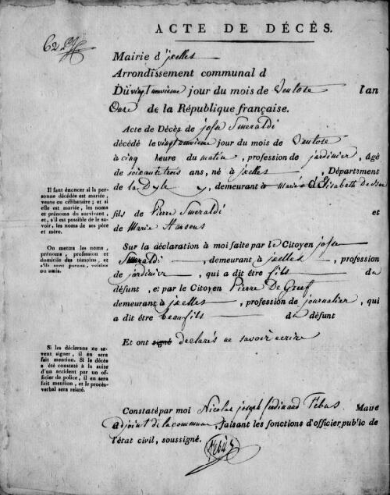 ACTE DE DÉCÈS.
Mairie d'ixelles
Arrondissement communal d
Du vingt neuvieme jour du mois de Ventose l'an
Onze de la République française.
Acte de Décès de josse Smeraldi
décédé le vingt neuvieme jour du mois de Ventose
à cinq heure du matin, profession de jardinier, âgé
de soixante trois ans, né à ixelles, Département
de la Dyle, demeurant à marié à Elisabeth
fils de Pierre Smeraldi et
de Marie
Sur la déclaration à moi faite par le Citoyen josse
Smeraldi, demeurant à ixelles, profession
de jardinier, qui a dit être fils du
défunt, et par le Citoyen Pierre De Greef
demeurant à ixelles, profession de journalier, qui
a dit être beaufils du défunt
Et ont signé declarés ne savoir ecrire
Constaté par moi Nicolas joseph ferdinand Maire
adjoint de la commune, faisant les fonctions d'officier public de
l'état civil, soussigné.
Il faut énoncer si la personne
décédée est mariée,
veuve ou célibataire; si
elle est mariée, les noms
et prénoms du survivant,
et, s'il est possible de le savoir,
les noms de ses père
et mère.
On mettra les noms,
prénoms, profession et
domicile des témoins, et
s'ils sont parens, voisins
ou amis.
Si les déclarans ne savent
signer, il en sera
fait mention. Si le décès
a été constaté à la suite
d'un accident par un officier
de police, il en sera
fait mention, et le procès-verbal
sera relaté.